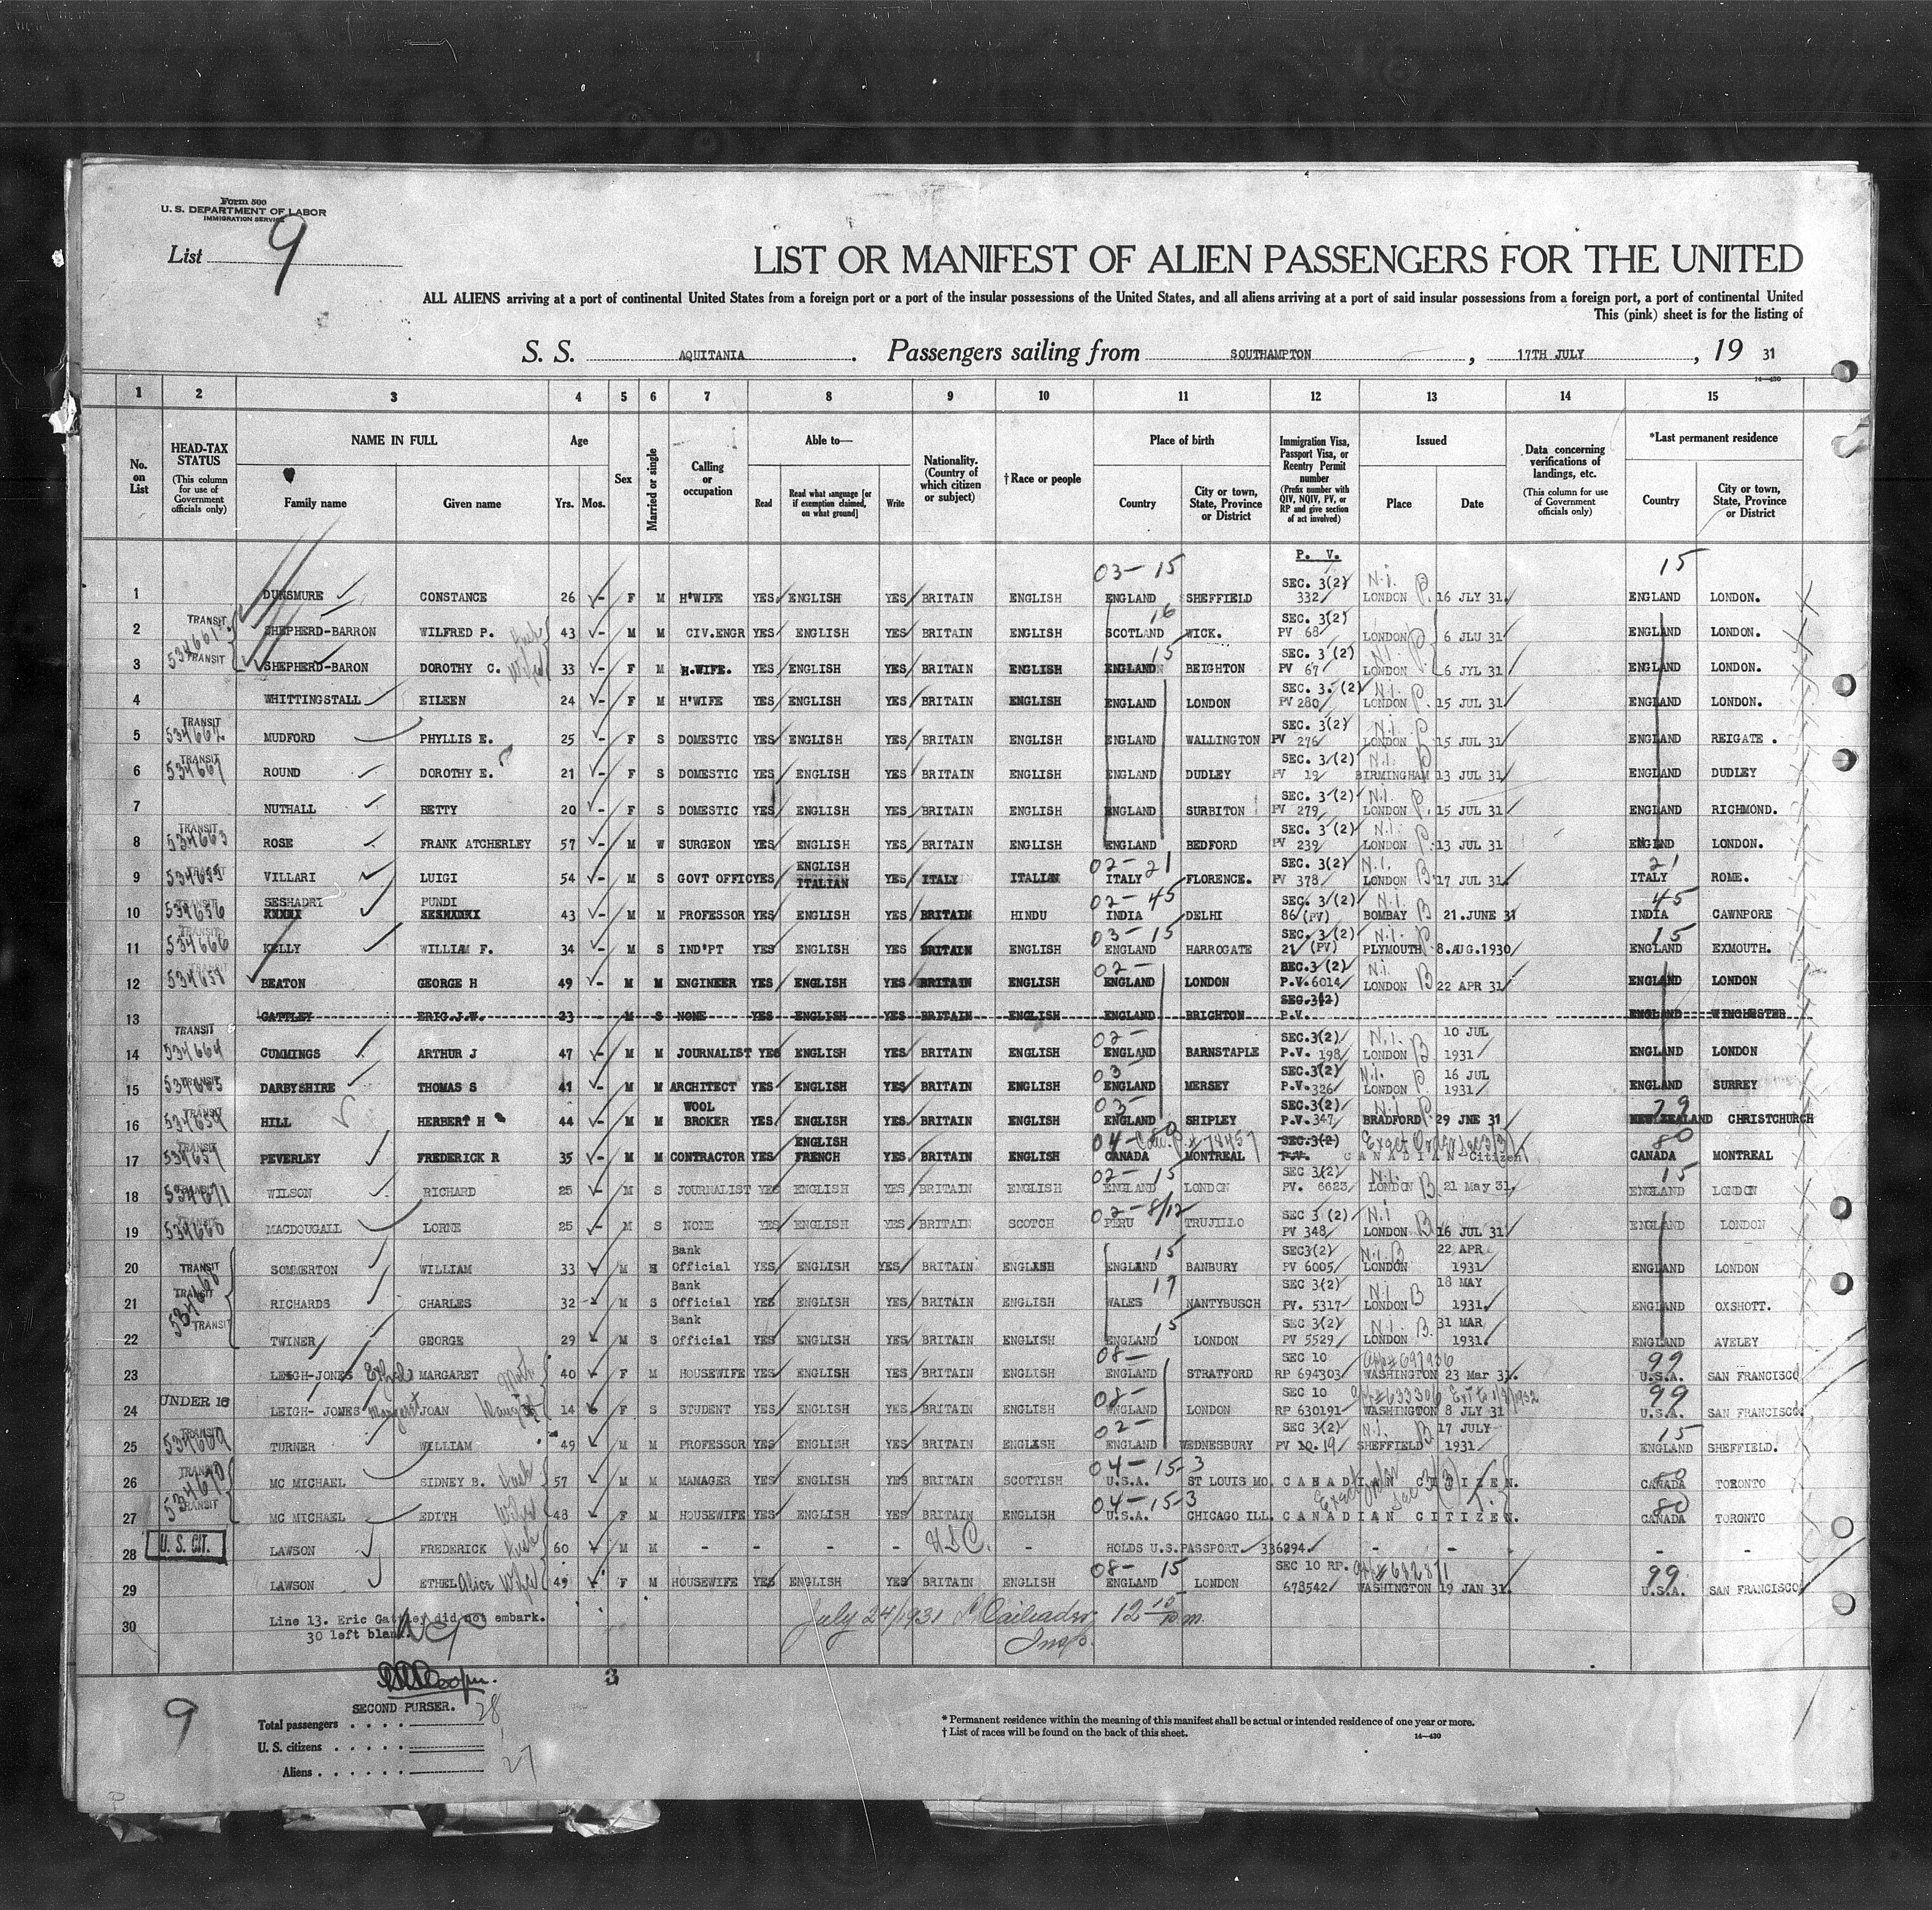 Form 500
U. S. DEPARTMENT OF LABOR
IMMIGRATION SERVICE
List 9
LIST OR MANIFEST OF ALIEN PASSENGERS FOR THE UNITED
ALL ALIENS arriving at a port of continental United States from a foreign port or a port of the insular possessions of the United States, and all aliens arriving at a port of said insular possessions from a foreign port, a port of continental United
This (pink) sheet is for the listing of
S. S. AQUITANIA. Passengers sailing from SOUTHAMPTON, 17TH JULY, 19 31
14—430
1 2 3 4 5 6 7 8 9 10 11 12 13 14 15
No. on List
HEAD-TAX STATUS (This column for use of Government officials only)
NAME IN FULL
Family name Given name
Age
Yrs. Mos.
Sex
Married or single
Calling or occupation
Able to—
Read Read what language [or if exemption claimed, on what ground] Write
Nationality. (Country of which citizen or subject)
† Race or people
Place of birth
Country City or town, State, Province or District
Immigration Visa, Passport Visa, or Reentry Permit number (Prefix number with QIV, NQIV, PV, or RP and give section of act involved)
Issued
Place Date
Data concerning verifications of landings, etc. (This column for use of Government officials only)
*Last permanent residence
Country City or town, State, Province or District
P. V.
03- 15 15
1 DUNSMURE CONSTANCE 26 F M H'WIFE YES ENGLISH YES BRITAIN ENGLISH ENGLAND SHEFFIELD SEC. 3(2) 332 N.I. LONDON P. 16 JLY 31 ENGLAND LONDON.
2 TRANSIT 534661 SHEPHERD-BARRON WILFRED P. 43 M M CIV.ENGR YES ENGLISH YES BRITAIN ENGLISH 16 SCOTLAND WICK. SEC. 3(2) PV 68 LONDON 6 JLU 31 ENGLAND LONDON.
3 TRANSIT SHEPHERD-BARON DOROTHY C. Wife 33 F M H.WIFE. YES ENGLISH YES BRITAIN ENGLISH 15 ENGLAND BEIGHTON SEC. 3 (2) PV 67 N.I. LONDON 6 JYL 31 ENGLAND LONDON.
4 WHITTINGSTALL EILEEN 24 F M H'WIFE YES ENGLISH YES BRITAIN ENGLISH ENGLAND LONDON SEC. 3. (2) PV 280 N.I. LONDON P. 15 JUL 31 ENGLAND LONDON.
5 TRANSIT 534662 MUDFORD PHYLLIS E. 25 F S DOMESTIC YES ENGLISH YES BRITAIN ENGLISH ENGLAND WALLINGTON SEC. 3(2) PV 276 N.I. LONDON P 15 JUL 31 ENGLAND REIGATE .
6 TRANSIT 534667 ROUND DOROTHY E. 21 F S DOMESTIC YES ENGLISH YES BRITAIN ENGLISH ENGLAND DUDLEY SEC. 3 (2) PV 19 N.I. BIRMINGHAM 13 JUL 31 ENGLAND DUDLEY
7 NUTHALL BETTY 20 F S DOMESTIC YES ENGLISH YES BRITAIN ENGLISH ENGLAND SURBITON SEC. 3 (2) PV 279 N.I. LONDON P. 15 JUL 31 ENGLAND RICHMOND.
8 TRANSIT 534663 ROSE FRANK ATCHERLEY 57 M W SURGEON YES ENGLISH YES BRITAIN ENGLISH ENGLAND BEDFORD SEC. 3 (2) PV 239 N.I. LONDON P. 13 JUL 31 ENGLND LONDON.
9 534655 VILLARI LUIGI 54 M S GOVT OFFIC YES ENGLISH ITALIAN YES ITALY ITALIAN 02-21 ITALY FLORENCE. SEC. 3(2) PV 378 N.I. LONDON B 17 JUL 31 21 ITALY ROME.
10 534656 SESHADRI PUNDI 43 M M PROFESSOR YES ENGLISH YES BRITAIN HINDU 02-45 INDIA DELHI SEC. 3 (2) 86 (PV) N.I. BOMBAY B 21.JUNE 31 45 INDIA CAWNPORE
11 TRANSIT 534666 KELLY WILLIAM F. 34 M S IND'PT YES ENGLISH YES BRITAIN ENGLISH 03-15 ENGLAND HARROGATE SEC. 3 (2) 21 (PV) N.I. PLYMOUTH P. 8.AUG.1930 15 ENGLAND EXMOUTH.
12 534658 BEATON GEORGE H 49 M M ENGINEER YES ENGLISH YES BRITAIN ENGLISH 02- ENGLAND LONDON SEC.3 (2) P.V.6014 N.I. LONDON B 22 APR 31 ENGLAND LONDON
13 GATTLEY ERIC.J.W. 23 M S NONE YES ENGLISH YES BRITAIN ENGLISH ENGLAND BRIGHTON SEC.3(2) P.V. ENGLAND WINCHESTER
14 TRANSIT 534664 CUMMINGS ARTHUR J 47 M M JOURNALIST YES ENGLISH YES BRITAIN ENGLISH 02- ENGLAND BARNSTAPLE SEC.3(2) P.V. 198 N.I. LONDON B 10 JUL 1931 ENGLAND LONDON
15 TRANSIT 534665 DARBYSHIRE THOMAS S 41 M M ARCHITECT YES ENGLISH YES BRITAIN ENGLISH 03 ENGLAND MERSEY SEC.3(2) P.V.326 N.I. LONDON P. 16 JUL 1931 ENGLAND SURREY
16 TRANSIT 534659 HILL HERBERT H 44 M M WOOL BROKER YES ENGLISH YES BRITAIN ENGLISH 03- ENGLAND SHIPLEY SEC.3(2) P.V.347 N.I. BRADFORD P. 29 JNE 31 79 NEW ZEALAND CHRISTCHURCH
17 TRANSIT 534657 PEVERLEY FREDERICK R 35 M M CONTRACTOR YES ENGLISH FRENCH YES BRITAIN ENGLISH 04-80 CANADA MONTREAL SEC.3(2) P.V. CANADIAN Citizen 80 CANADA MONTREAL
18 TRANSIT 534671 WILSON RICHARD 25 M S JOURNALIST YES ENGLISH YES BRITAIN ENGLISH 02-15 ENGLAND LONDON SEC 3(2) PV. 6623 N.I. LONDON B 21 May 31 15 ENGLAND LONDON
19 TRANSIT 534660 MACDOUGALL LORNE 25 M S NONE YES ENGLISH YES BRITAIN SCOTCH 02-8/12 PERU TRUJILLO SEC 3 (2) PV 348 N.I LONDON B 16 JUL 31 ENGLAND LONDON
20 TRANSIT SOMMERTON WILLIAM 33 M Bank Official YES ENGLISH YES BRITAIN ENGLISH 15 ENGLAND BANBURY SEC3(2) PV 6005 N.I. B LONDON 22 APR 1931 ENGLAND LONDON
21 TRANSIT 534668 RICHARDS CHARLES 32 M S Bank Official YES ENGLISH YES BRITAIN ENGLISH 17 WALES NANTYBUSCH SEC 3(2) PV. 5317 N.I. LONDON B 18 MAY 1931. ENGLAND OXSHOTT.
22 TRANSIT TWINER GEORGE 29 M S Bank Official YES ENGLISH YES BRITAIN ENGLISH 15 ENGLAND LONDON SEC 3(2) PV 5529 N.I. LONDON B. 31 MAR 1931. ENGLAND AVELEY
23 LEIGH-JONES Ethel MARGARET Moth 40 F M HOUSEWIFE YES ENGLISH YES BRITAIN ENGLISH 08- ENGLAND STRATFORD SEC 10 RP 694303 App# 697936 WASHINGTON 23 Mar 31. 99 U.S.A. SAN FRANCISCO
24 UNDER 16 LEIGH- JONES Margaret JOAN Daught 14 F S STUDENT YES ENGLISH YES BRITAIN ENGLISH 08- ENGLAND LONDON SEC 10 RP 630191 App# 633306 WASHINGTON 8 JLY 31 99 U.S.A. SAN FRANCISCO
25 TRANSIT 534669 TURNER WILLIAM 49 M M PROFESSOR YES ENGLISH YES BRITAIN ENGLISH 02- ENGLAND WEDNESBURY SEC 3(2) PV 10.19 N.I. SHEFFIELD B 17 JULY 1931 15 ENGLAND SHEFFIELD.
26 TRANSIT 534670 MC MICHAEL SIDNEY B. Husb 57 M M MANAGER YES ENGLISH YES BRITAIN SCOTTISH 04-15-3 U.S.A. ST LOUIS MO. CANADIAN CITIZEN. 80 CANADA TORONTO
27 TRANSIT MC MICHAEL EDITH Wife 48 F M HOUSEWIFE YES ENGLISH YES BRITAIN ENGLISH 04-15-3 U.S.A. CHICAGO ILL. CANADIAN CITIZEN. 80 CANADA TORONTO
28 U. S. CIT. LAWSON FREDERICK Husb 60 M M - - - - USC. - HOLDS U.S.PASSPORT 336294. - - - -
29 LAWSON ETHEL Alice Wife 49 F M HOUSEWIFE YES ENGLISH YES BRITAIN ENGLISH 08- 15 ENGLAND LONDON SEC 10 RP. 678542 WASHINGTON 19 JAN 31. 99 U.S.A. SAN FRANCISCO
30 Line 13. Eric Gattley did not embark.
30 left blank.
July 24/1931 12 10/ p.m.
Insp.
3
SECOND PURSER.
9
Total passengers . . . . 28
U. S. citizens . . . . . 1
Aliens . . . . . . 27
* Permanent residence within the meaning of this manifest shall be actual or intended residence of one year or more.
† List of races will be found on the back of this sheet.
14—430